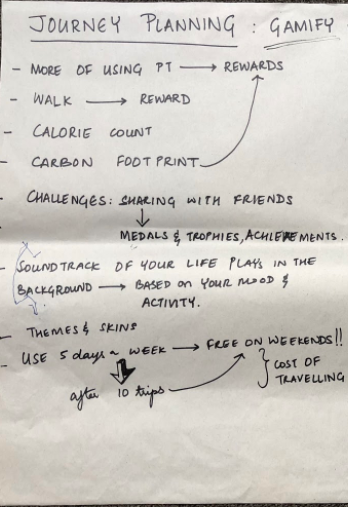 JOURNEY PLANNING : GAMIFY
- MORE OF USING PT → REWARDS
- WALK → REWARD
- CALORIE COUNT
- CARBON FOOTPRINT
- CHALLENGES: SHARING WITH FRIENDS
MEDALS & TROPHIES, ACHIEVEMENTS.
- SOUNDTRACK OF YOUR LIFE PLAYS IN THE
BACKGROUND → BASED ON YOUR MOOD &
ACTIVITY.
- THEMES & SKINS
- USE 5 days a WEEK → FREE ON WEEKENDS!!
COST OF
TRAVELLING
after 10 trips